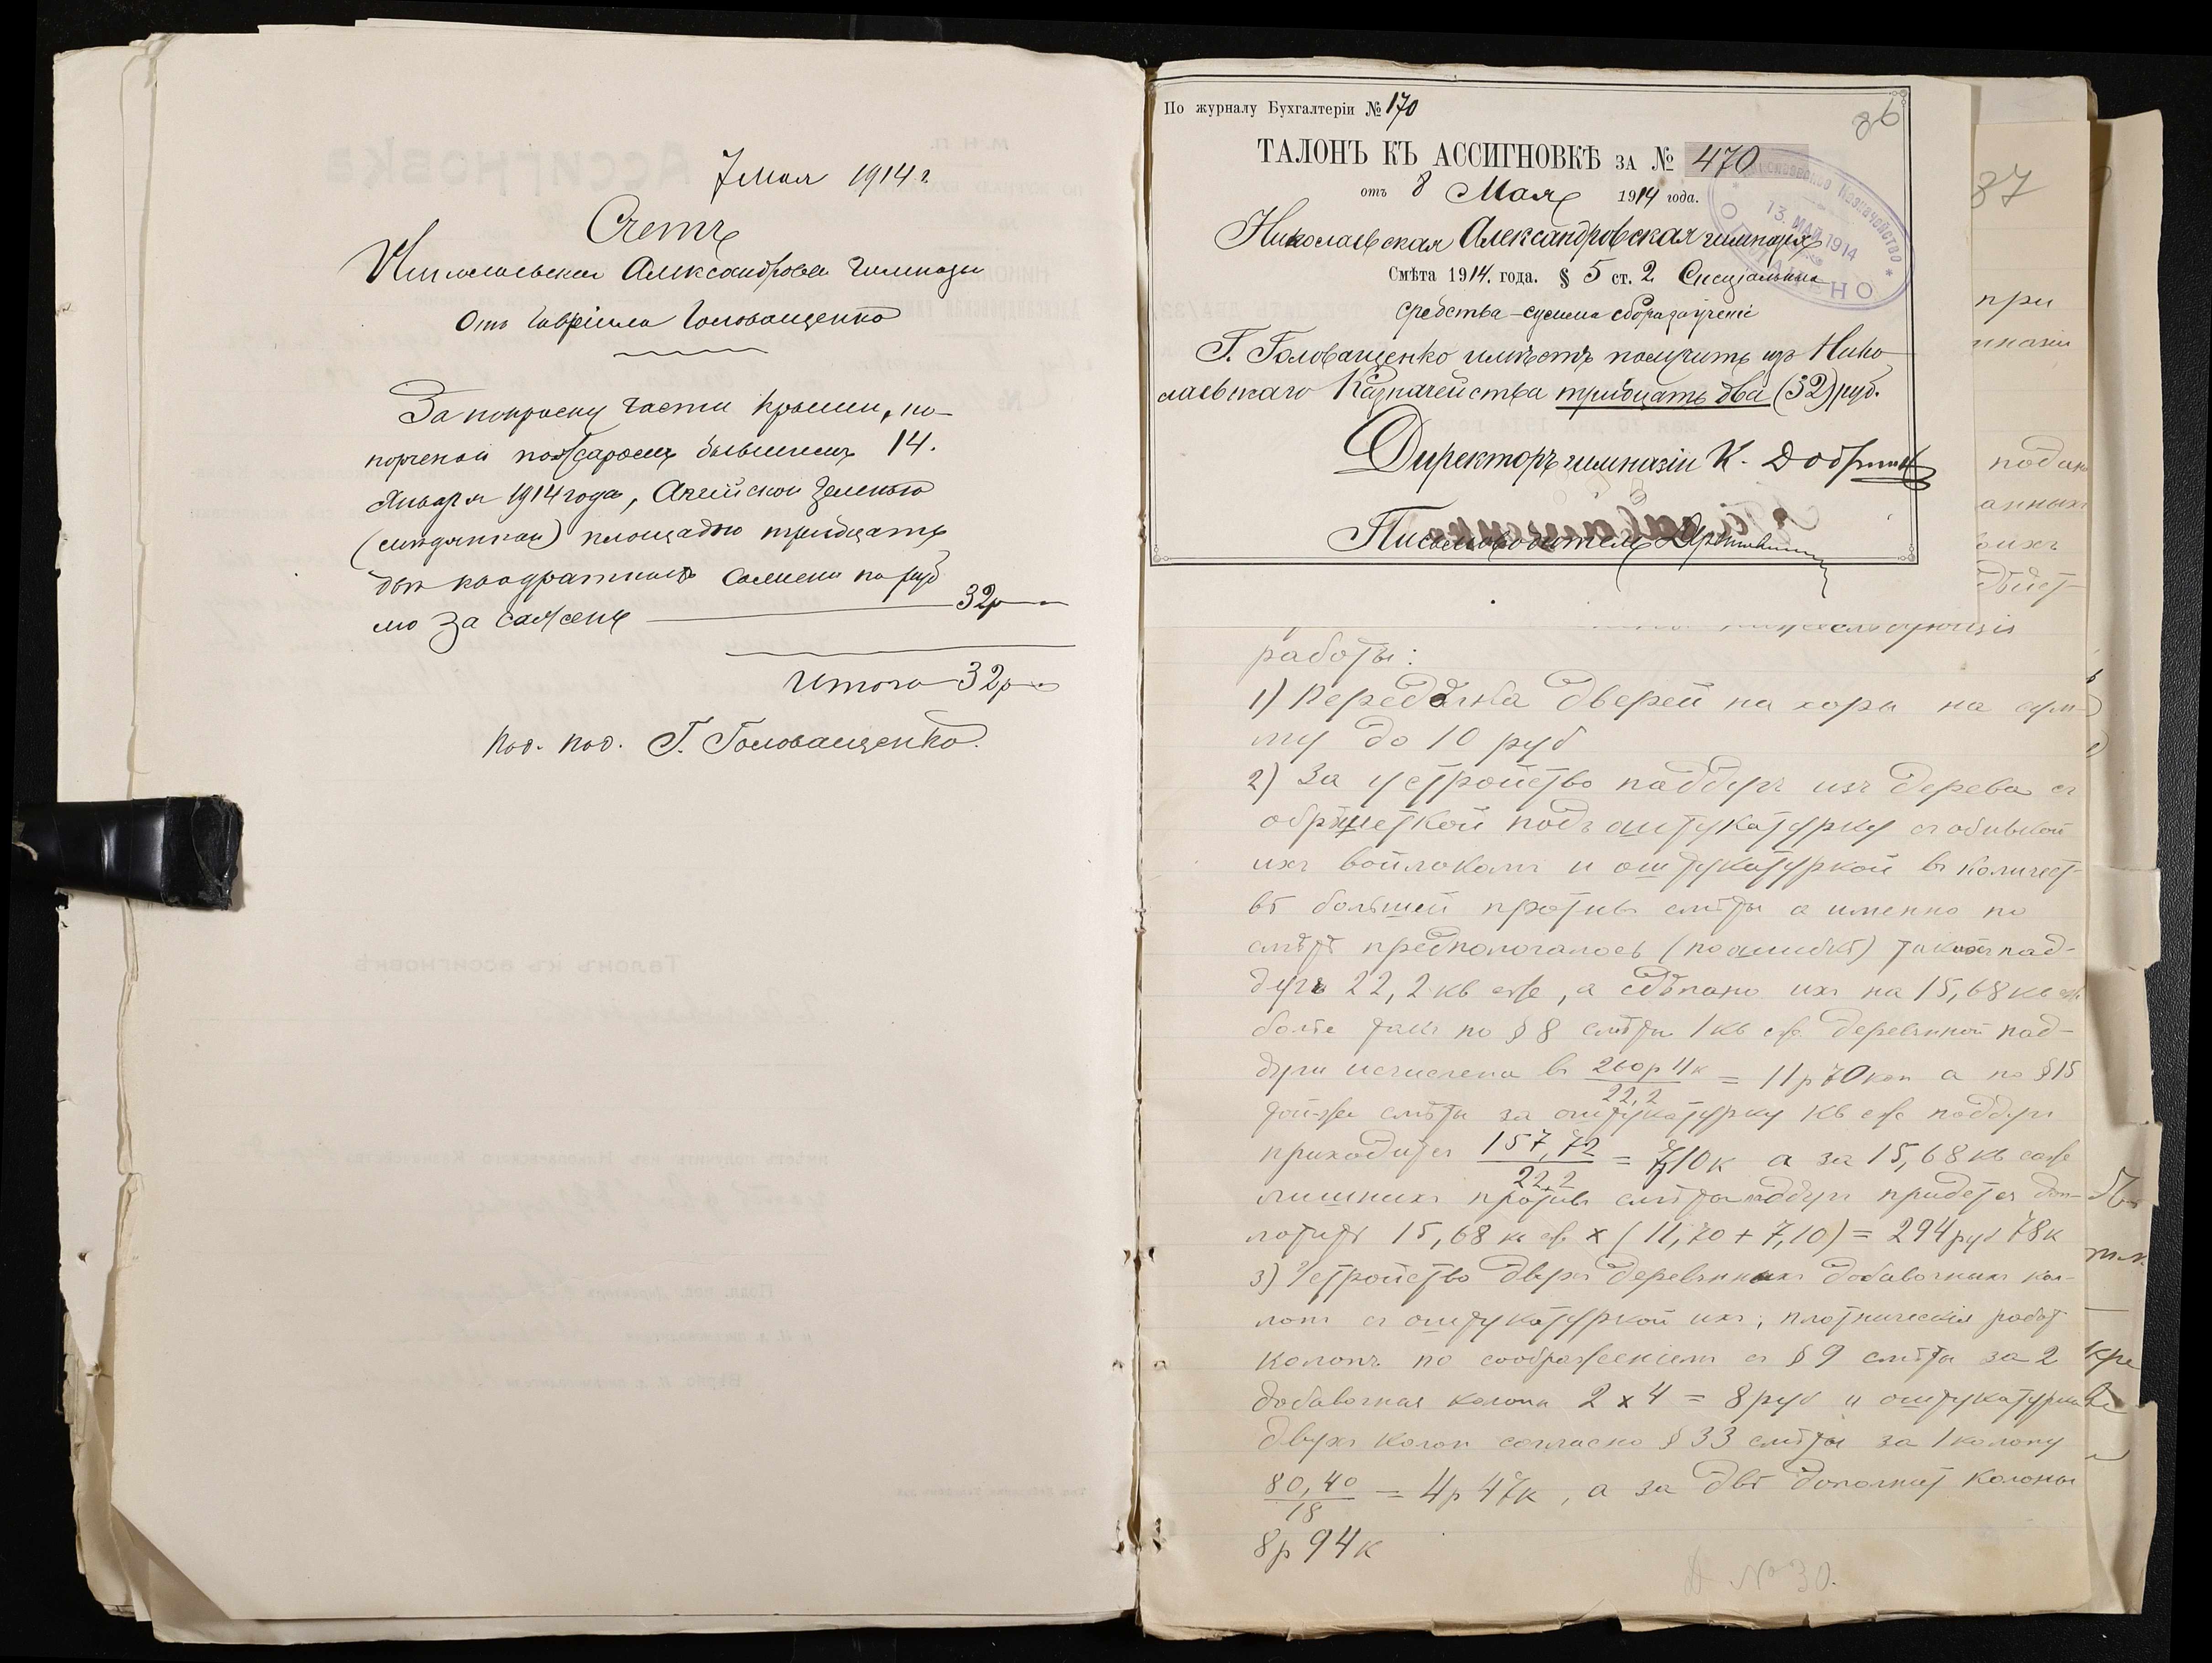 7 Мая 1914 г.
Счетъ
Николаевская Александров Гимнази
Отъ Гавріила Головащенко
За покраску части крыши, по-
порченой пожаромъ бывшимъ 14.
Января 1914 года, Англійской зеленью
(мидянкой) площадью тридцать
два квадратныхъ сажени по руб
лю за сажень 32р
Итого 32р
Под. под. Г. Головащенко.
По журналу Бухгалтеріи № 170
36
ТАЛОНЪ КЪ АССИГНОВКѢ за № 470
отъ 8 Мая 1914 года.
Николаевская Александровская гимназія
Смѣта 1914. года. § 5 ст. 2 Спеціальныя
средства – сумма сбора за ученіе
Г. Головащенко имѣетъ получить изъ Нико
лаевскаго Казначейства тридцать два (32) руб.
Директоръ гимназіи К.
Письмоводитель
Казначейство
13. МАЯ 1914
ОПЛАЧЕНО
37
при
подан
анныхъ
работы:
1) Передѣлка дверей на хоры на сум-
му до 10 руб
2) За устройство паддугъ изъ дерева съ
обрѣшеткой подъ оштукатурку съ обивкой
ихъ войлокомъ и оштукатуркой въ количест-
вѣ большей противъ смѣты а именно по
смѣтѣ предпологалось (по ошибкѣ) такихъ пад-
дугъ 22,2 кв саж, а сдѣлано ихъ на 15,68 кв саж
болѣе такъ по § 8 смѣты 1 кв саж деревянной пад-
дуги исчислена въ 260р 11к / 22,2 = 11р 70 коп а по § 15
той-же смѣты за оштукатурку кв саж паддуги
приходится 157,72 / 22,2 = 7р 10к а за 15,68 кв саж
лишнихъ противъ смѣты паддугъ придется доп-
латить 15,68 кв саж x (11,70 + 7,10) = 294 руб 78к
3) Устройство двухъ деревянныхъ добавочныхъ кол-
лонъ съ оштукатуркой ихъ; плотническія работ
колонъ по соображеніямъ съ § 9 смѣты за 2
добавочныя колоны 2 x 4 = 8 руб и оштукатурка
двухъ колон согласно § 33 смѣты за 1 колону
80,40 / 18 = 4р 47к, а за двѣ дополнит колоны
8р 94к
№ 30.